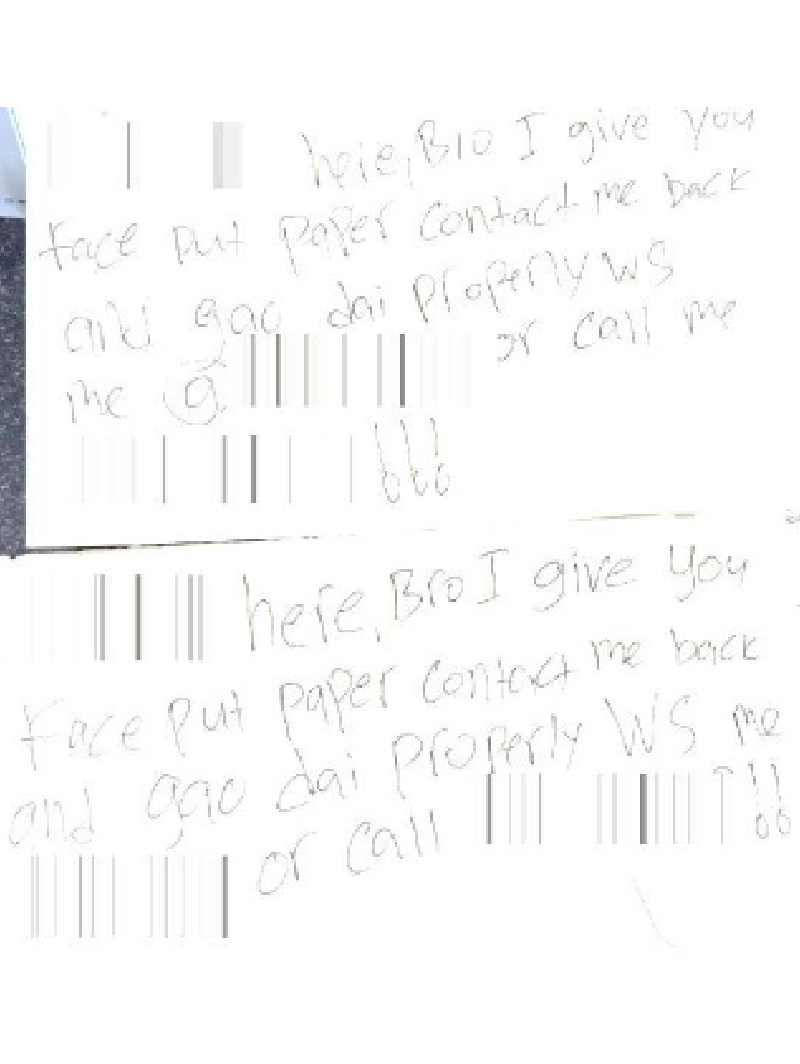 here, Bro I give you
face put paper contact me back
and gao dai properly WS
me @ or call me
!!!
here, Bro I give you
Face put paper contact me back
and gao dai properly WS me
or call !!